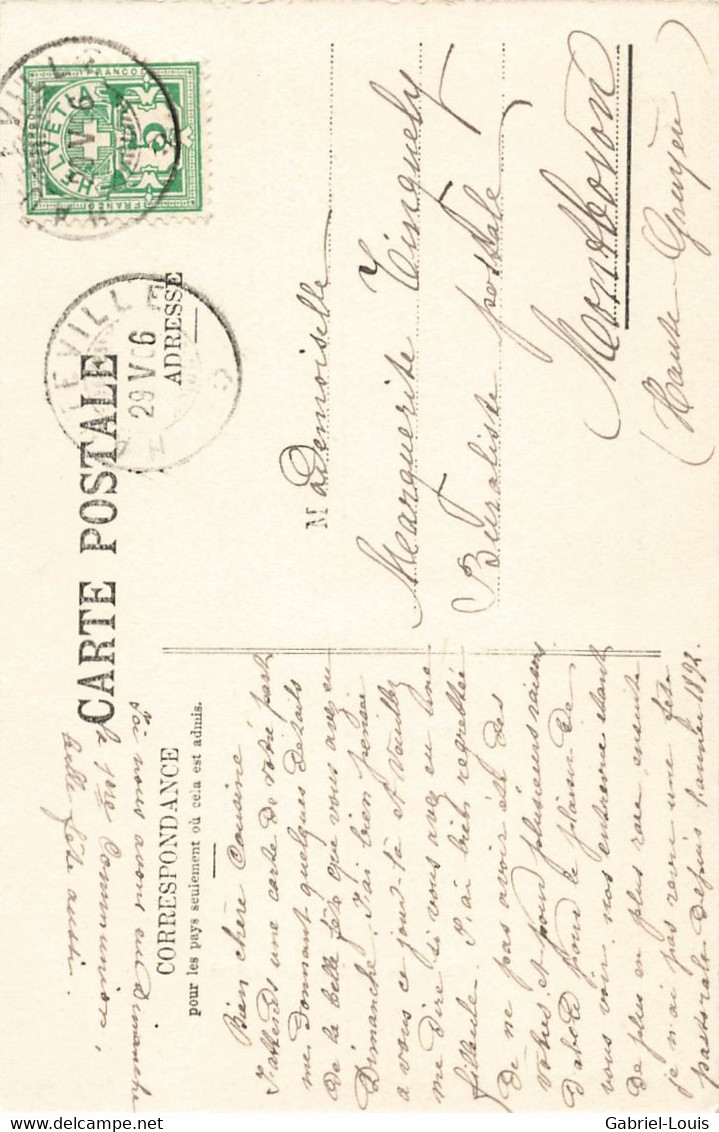 CARTE POSTALE
ADRESSE
HELVETIA
FRANCO
FRANCO
5
29 V 06
Mademoiselle
Marguerite Tinguely
Buraliste postale
Montbovon
(Haute Gruyère
CORRESPONDANCE
pour les pays seulement où cela est admis.
Bien chère Cousine
J'attends une carte de votre part
me donnant quelques détails
de la belle fête que vous avez eu
Dimanche. J'ai bien pensé
à vous ce jour-là et Veuillez
me dire si vous avez eu une
filleule. J'ai bien regretté
de ne pas avoir été des
vôtres, et pour plusieurs raisons
d'abord pour le plaisir de
vous voir, nos entrevues étant
de plus en plus rare, ensuite
je n'ai pas revu une fête
pastorale depuis l'année 1892.
Ici nous avons eu Dimanche
la 1ère Communion,
belle fête aussi.
Gabriel-Louis